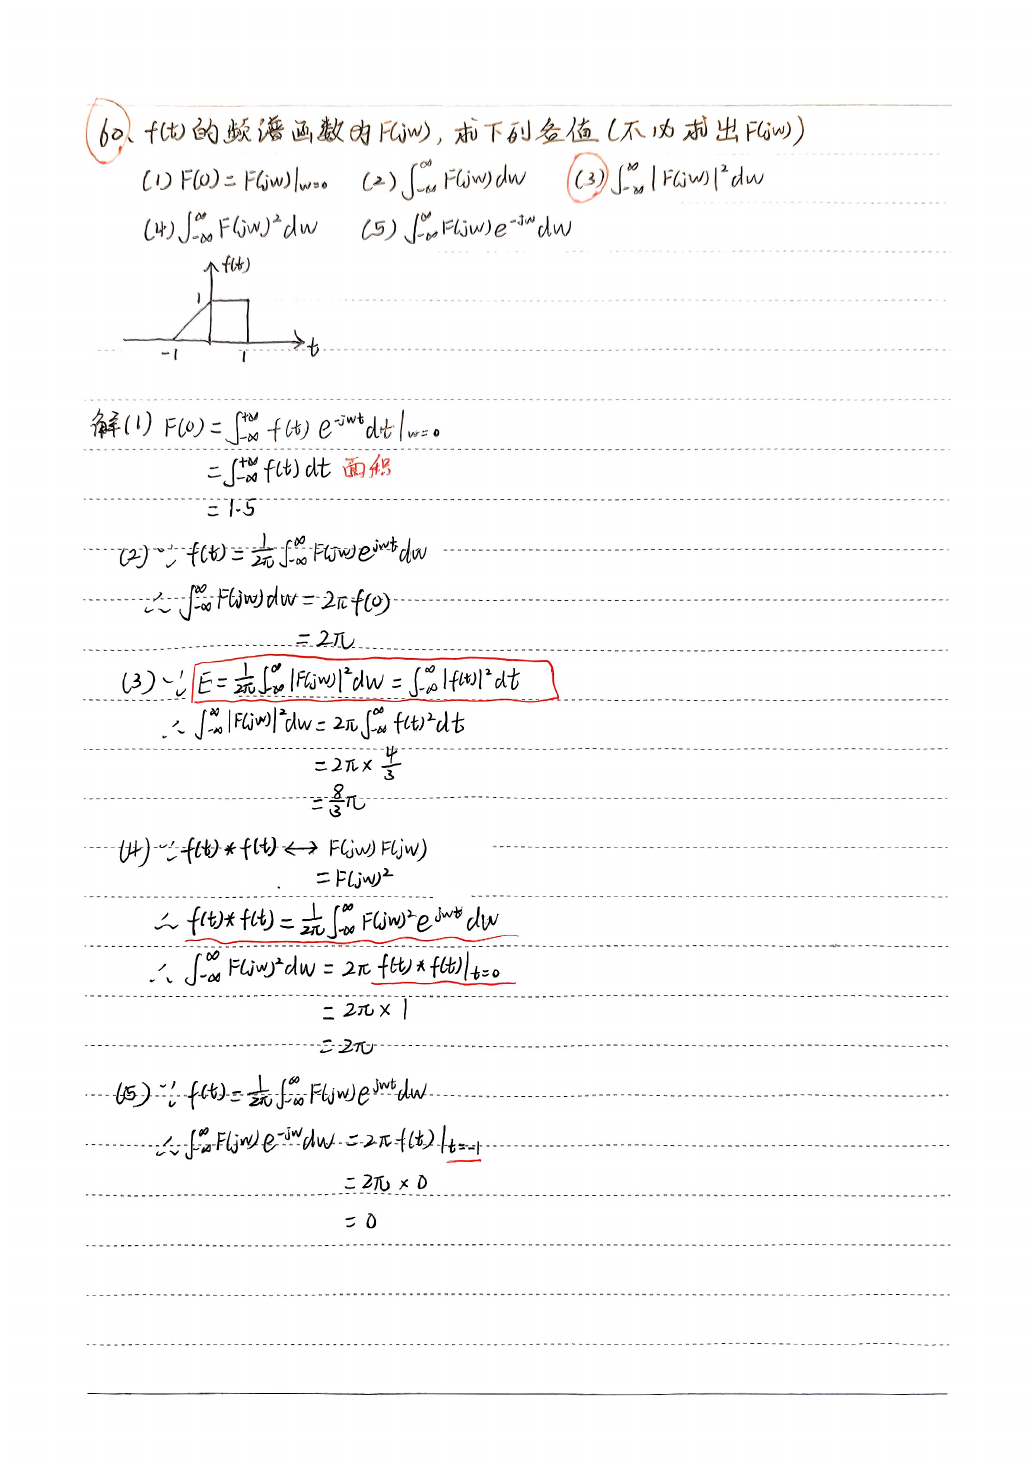 60、f(t)的频谱函数为F(jw), 求下列各值(不必求出F(jw))
(1) F(0)=F(jw)|w=0 (2) ∫_{-∞}^{∞} F(jw)dw (3) ∫_{-∞}^{∞} |F(jw)|²dw
(4) ∫_{-∞}^{∞} F(jw)²dw (5) ∫_{-∞}^{∞} F(jw)e^{-jw}dw
f(t)
1
-1 1 t
解(1) F(0)=∫_{-∞}^{+∞} f(t) e^{-jwt}dt|w=0
=∫_{-∞}^{+∞} f(t)dt 面积
=1.5
(2) ∵ f(t)=\frac{1}{2π}∫_{-∞}^{∞} F(jw)e^{jwt}dw
∴ ∫_{-∞}^{∞} F(jw)dw=2πf(0)
=2π
(3) ∵ E=\frac{1}{2π}∫_{-∞}^{∞} |F(jw)|²dw=∫_{-∞}^{∞} |f(t)|²dt
∴ ∫_{-∞}^{∞} |F(jw)|²dw=2π∫_{-∞}^{∞} f(t)²dt
=2π×\frac{4}{3}
=\frac{8}{3}π
(4) ∵ f(t)*f(t)↔F(jw)F(jw)
=F(jw)²
∴ f(t)*f(t)=\frac{1}{2π}∫_{-∞}^{∞} F(jw)²e^{jwt}dw
∴ ∫_{-∞}^{∞} F(jw)²dw=2π f(t)*f(t)|t=0
=2π×1
=2π
(5) ∵ f(t)=\frac{1}{2π}∫_{-∞}^{∞} F(jw)e^{jwt}dw
∴ ∫_{-∞}^{∞} F(jw)e^{-jw}dw=2πf(t)|t=-1
=2π×0
=0